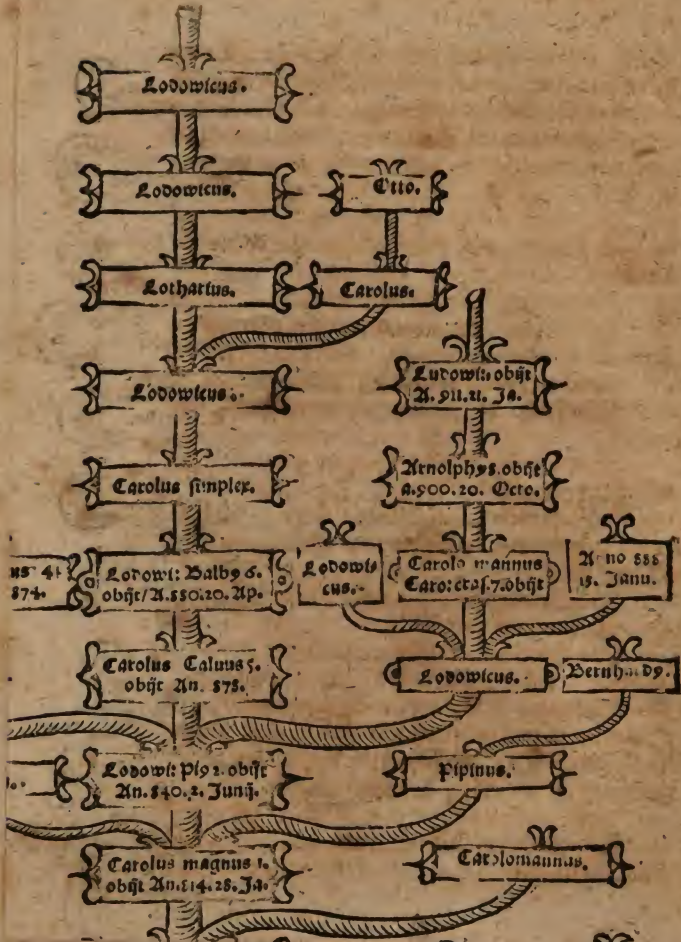 Lodowicus.
Lodowicus.
Otto.
Lotharius.
Carolus.
Lodowicus.
Ludowi: obijt
A. 911. 21. Ja.
Carolus simplex.
Arnolph9s. obijt
a. 900. 20. Octo.
us 4
874.
Lodowi: Balb9 6.
obijt/ A. 880. 20. Ap.
Lodowi
cus.
Carolo mannus
Caro: cras. 7. obijt
A no 888
15. Janu.
Carolus Caluus 5.
obijt An. 878.
Lodowicus.
Bernha d9.
Lodowi: Pi9 2. obijt
An. 840. 2. Junij.
Pipinus.
Carolus magnus 1.
obijt An. 814. 28. Ja.
Carolomannus.